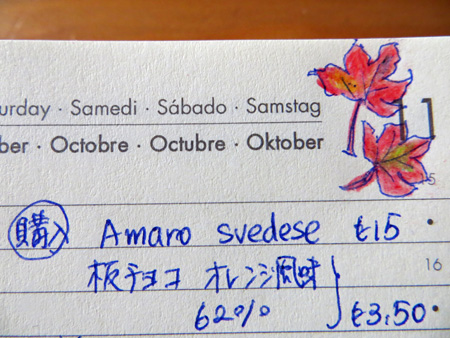 urday · Samedi · Sábado · Samstag
ber · Octobre · Octubre · Oktober
15
購入 Amaro svedese €15 ·
板チョコ オレンジ風味
16
62% €3.50 ·